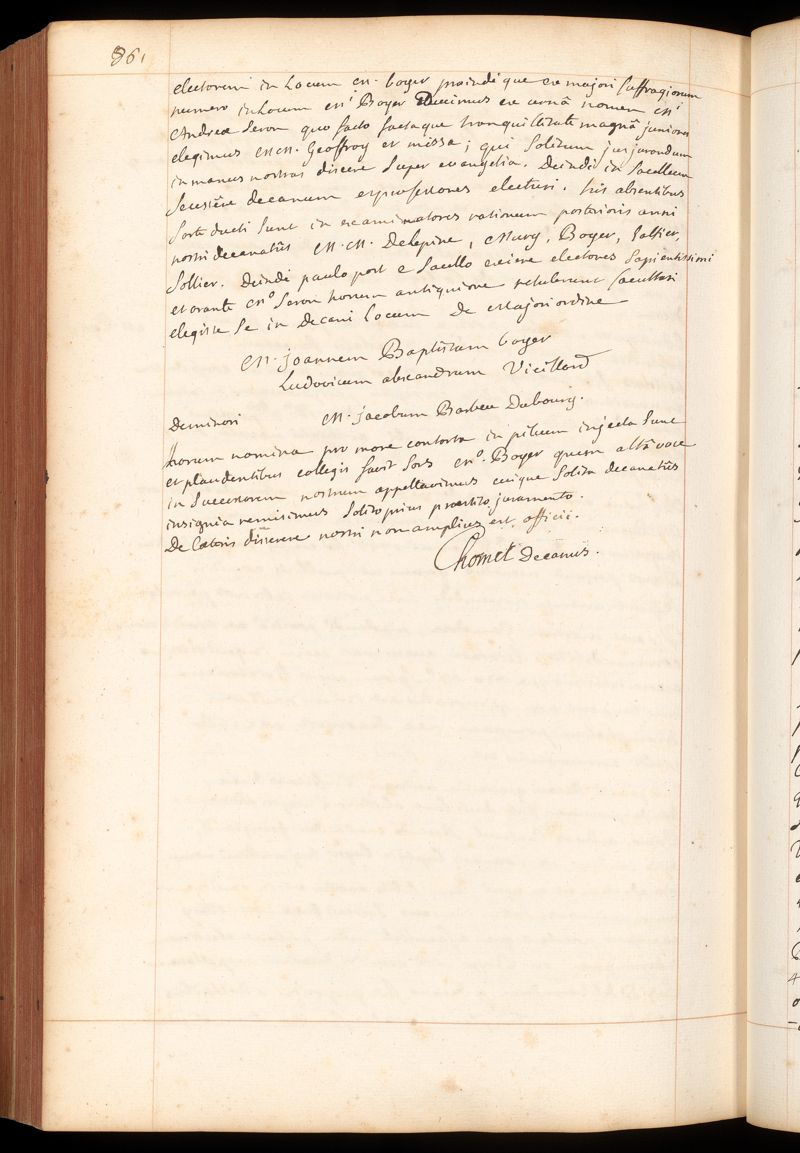 861
electorem in Locum M. boyer proinde que ex majori suffragiorum
numero in Locum Mi Boyer Ducimus ex urnâ nomen Mi
Andreæ Seron quo facto factaque tranquillitate magnâ juniores
elegimus MM. Geoffroy et missa; qui solitum jusjurandum
in manus nostras dixere super evangelia. Deinde in Sacellum
Secessêre decanum et professores electuri. his absentibus
Sorte ducti sunt in examinatores rationum posterioris anni
nostri decanatûs M.M. Delepine, Mury, Boyer,
Sollier. Deinde paulo post e Sacello exiere electores Sapientissimi
et orante Mo Seron horum antiquiore retulerunt facultati
elegisse Se in Decani Locum De Majori ordine
M. joannem Baptistam boyer
Ludovicum alexandrum Vieillard
De minori M. jacobum Barbeu Dubourg.
horum nomina pro more contorta in pileum injecta sunt
et plaudentibus collegis favit Sors Mo. Boyer quem altâ voce
in Successorem nostrum appellavimus cuique Solita decanatûs
insignia remisimus Solito prius præstito juramento.
De Cæteris disserere nostri non amplius est officii.
Chomel Decanus.